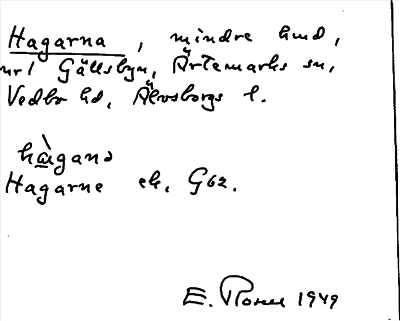 Hagarna, mindre hmd,
nr 1 Gällsbyn, Ärtemarks sn,
Vedbo hd, Älvsborgs l.
hàgana
Hagarne ek. G62.
E. Rosell 1949